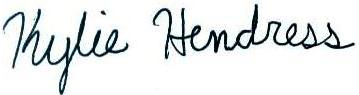 Kylie Hendress